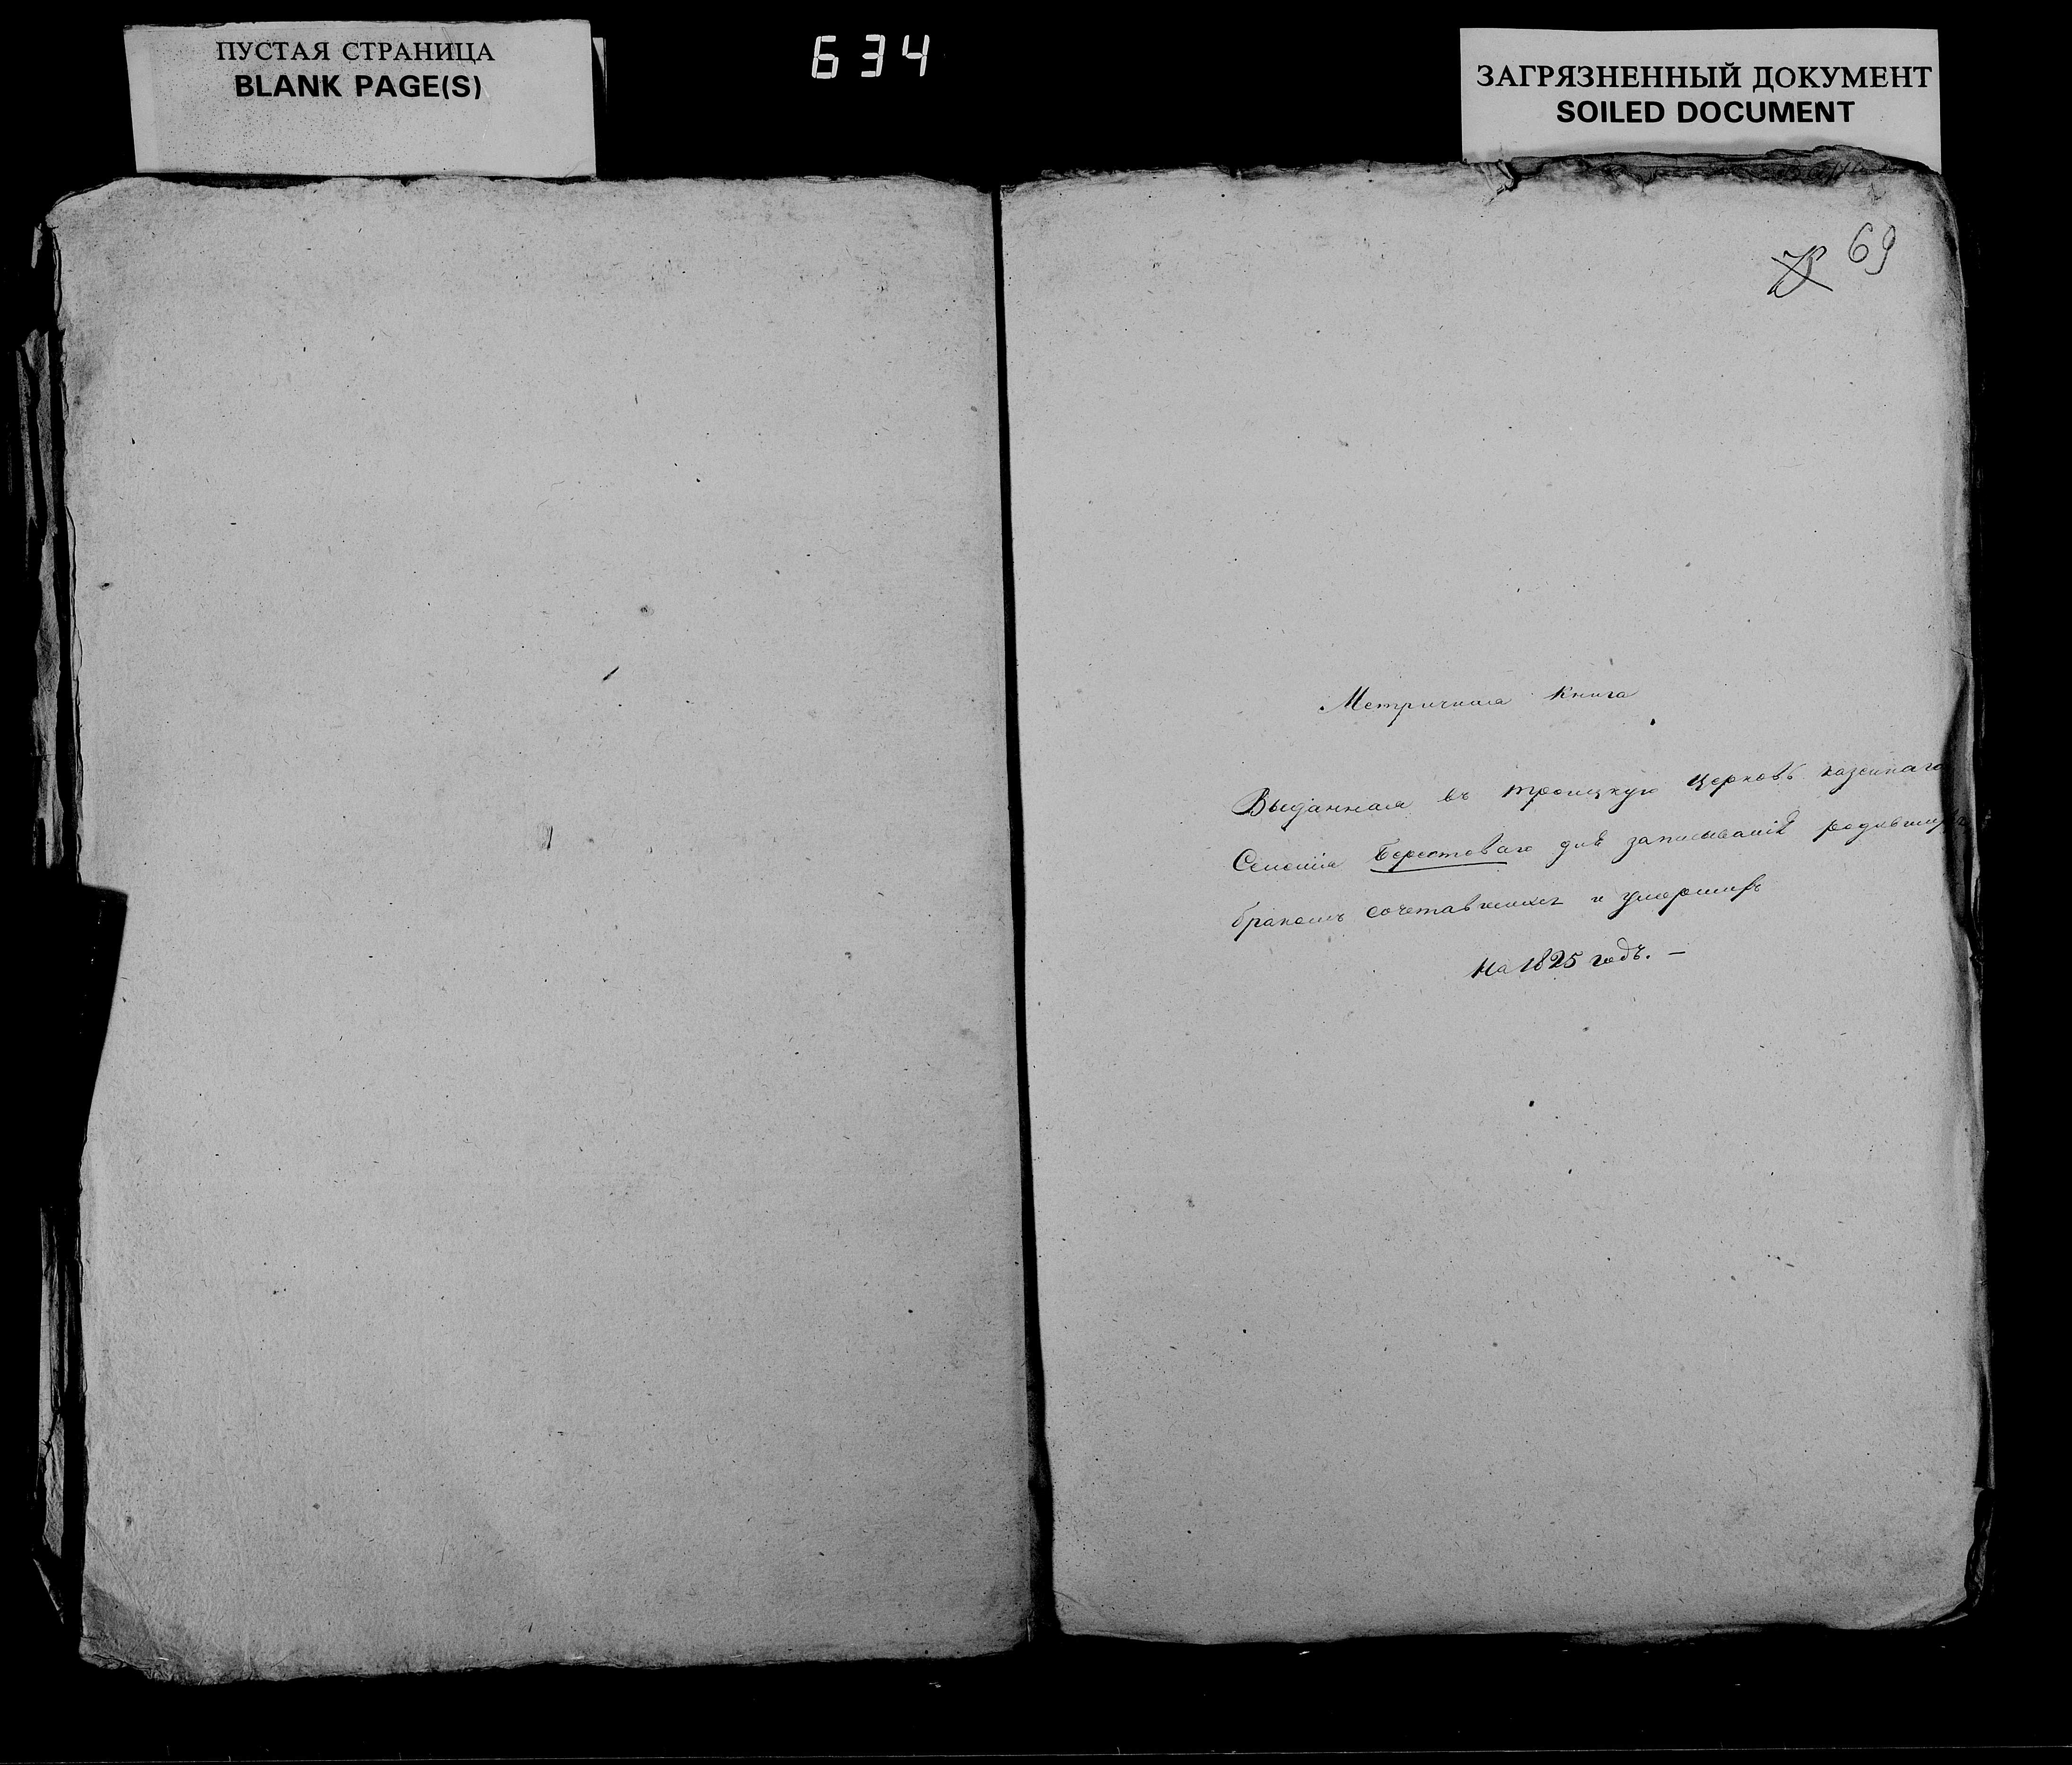 ПУСТАЯ СТРАНИЦА
BLANK PAGE(S)
634
ЗАГРЯЗНЕННЫЙ ДОКУМЕНТ
SOILED DOCUMENT
69
Метричная Книга
Выданная въ троицкую церковь казеннаго
Селенія Берестоваго для записыванія родивших
бракомъ сочетавшихся и умершихъ
На 1825 годъ. –